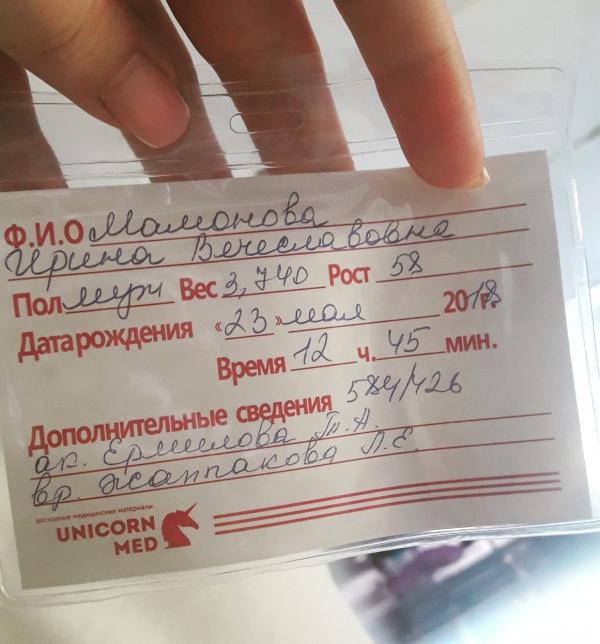 Ф.И.О Мамонова
Ирина Вечеславовна
Пол муж Вес 3,740 Рост 58
Дата рождения «23» мая 2018г.
Время 12 ч. 45 мин.
Дополнительные сведения 584/426
ак. Ермилова Т.А.
вр. Жаппакова Л.Е.
расходные медицинские материалы
UNICORN
MED